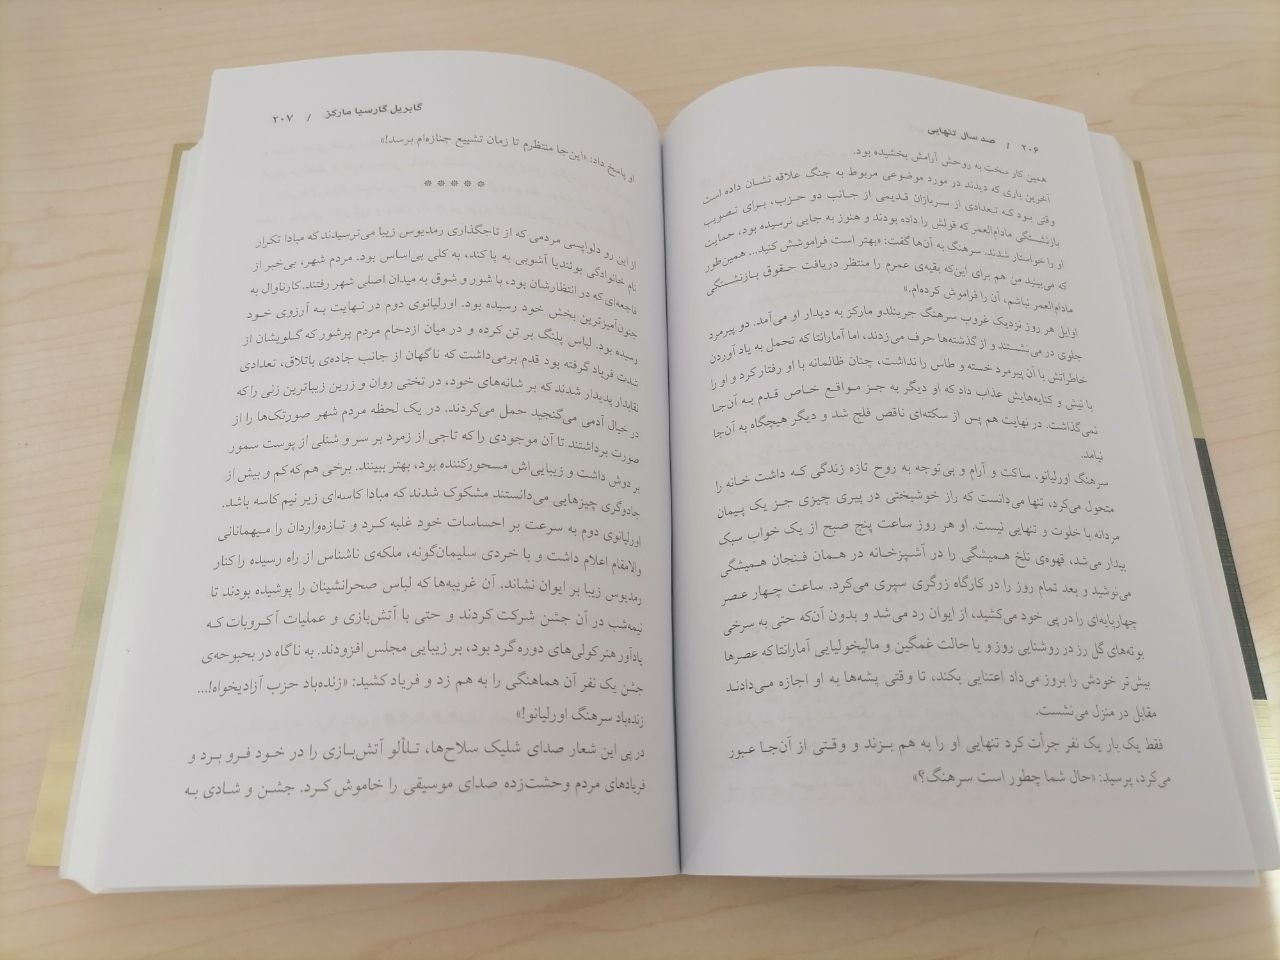 ۲۰۶ / صد سال تنهایی
همین کار سخت به روحش آرامش بخشیده بود.
آخرین باری که دیدند در مورد موضوعی مربوط به جنگ علاقه نشان داده است
وقتی بود که تعدادی از سربازان قدیمی از جانب دو حزب، برای تصویب
بازنشستگی مادام‌العمر که قولش را داده بودند و هنوز به جایی نرسیده بود، حمایت
او را خواستار شدند. سرهنگ به آن‌ها گفت: «بهتر است فراموشش کنید... همین‌طور
که می‌بینید من هم برای این‌که بقیه‌ی عمرم را منتظر دریافت حقوق بازنشستگی
مادام‌العمر نباشم، آن را فراموش کرده‌ام.»
اوایل هر روز نزدیک غروب سرهنگ جرینلدو مارکز به دیدار او می‌آمد. دو پیرمرد
جلوی در می‌نشستند و از گذشته‌ها حرف می‌زدند، اما آمارانتا که تحمل به یاد آوردن
خاطراتش با آن پیرمرد خسته و طاس را نداشت، چنان ظالمانه با او رفتار کرد و او را
با نیش و کنایه‌هایش عذاب داد که او دیگر به جز مواقع خاص قدم به آن‌جا
نمی‌گذاشت. در نهایت هم پس از سکته‌ای ناقص فلج شد و دیگر هیچگاه به آن‌جا
نیامد.
سرهنگ اورلیانو، ساکت و آرام و بی‌توجه به روح تازه زندگی که داشت خانه را
متحول می‌کرد، تنها می‌دانست که راز خوشبختی در پیری چیزی جز یک پیمان
مردانه با خلوت و تنهایی نیست. او هر روز ساعت پنج صبح از یک خواب سبک
بیدار می‌شد، قهوه‌ی تلخ همیشگی را در آشپزخانه در همان فنجان همیشگی
می‌نوشید و بعد تمام روز را در کارگاه زرگری سپری می‌کرد. ساعت چهار عصر
چهارپایه‌ای را در پی خود می‌کشید، از ایوان رد می‌شد و بدون آن‌که حتی به سرخی
بوته‌های گل رز در روشنایی روز و یا حالت غمگین و مالیخولیایی آمارانتا که عصرها
بیش‌تر خودش را بروز می‌داد اعتنایی بکند، تا وقتی پشه‌ها به او اجازه می‌دادند
مقابل در منزل می‌نشست.
فقط یک بار یک نفر جرأت کرد تنهایی او را به هم بزند و وقتی از آن‌جا عبور
می‌کرد، پرسید: «حال شما چطور است سرهنگ؟»
گابریل گارسیا مارکز / ۲۰۷
او پاسخ داد: «این‌جا منتظرم تا زمان تشییع جنازه‌ام برسد!»
*****
از این رو دلواپسی مردمی که از تاجگذاری رمدیوس زیبا می‌ترسیدند که مبادا تکرار
نام خانوادگی بوئندیا آشوبی به پا کند، به کلی بی‌اساس بود. مردم شهر، بی‌خبر از
فاجعه‌ای که در انتظارشان بود، با شور و شوق به میدان اصلی شهر رفتند. کارناوال به
جنون‌آمیزترین بخش خود رسیده بود. اورلیانوی دوم در نهایت به آرزوی خود
رسیده بود. لباس پلنگ بر تن کرده و در میان ازدحام مردم پرشور که گلویشان از
شدت فریاد گرفته بود قدم برمی‌داشت که ناگهان از جانب جاده‌ی باتلاق، تعدادی
نقابدار پدیدار شدند که بر شانه‌های خود، در تختی روان و زرین زیباترین زنی را که
در خیال آدمی می‌گنجید حمل می‌کردند. در یک لحظه مردم شهر صورتک‌ها را از
صورت برداشتند تا آن موجودی را که تاجی از زمرد بر سر و شنلی از پوست سمور
بر دوش داشت و زیبایی‌اش مسحورکننده بود، بهتر ببینند. برخی هم که کم و بیش از
جادوگری چیزهایی می‌دانستند مشکوک شدند که مبادا کاسه‌ای زیر نیم کاسه باشد.
اورلیانوی دوم به سرعت بر احساسات خود غلبه کرد و تازه‌واردان را میهمانانی
والامقام اعلام داشت و با خردی سلیمان‌گونه، ملکه‌ی ناشناس از راه رسیده را کنار
رمدیوس زیبا بر ایوان نشاند. آن غریبه‌ها که لباس صحرانشینان را پوشیده بودند تا
نیمه‌شب در آن جشن شرکت کردند و حتی با آتش‌بازی و عملیات آکروبات که
یادآور هنر کولی‌های دوره گرد بود، بر زیبایی مجلس افزودند. به ناگاه در بحبوحه‌ی
جشن یک نفر آن هماهنگی را به هم زد و فریاد کشید: «زنده‌باد حزب آزادیخواه!...
زنده‌باد سرهنگ اورلیانو!»
در پی این شعار صدای شلیک سلاح‌ها، تلألو آتش‌بازی را در خود فرو برد و
فریادهای مردم وحشت‌زده صدای موسیقی را خاموش کرد. جشن و شادی به